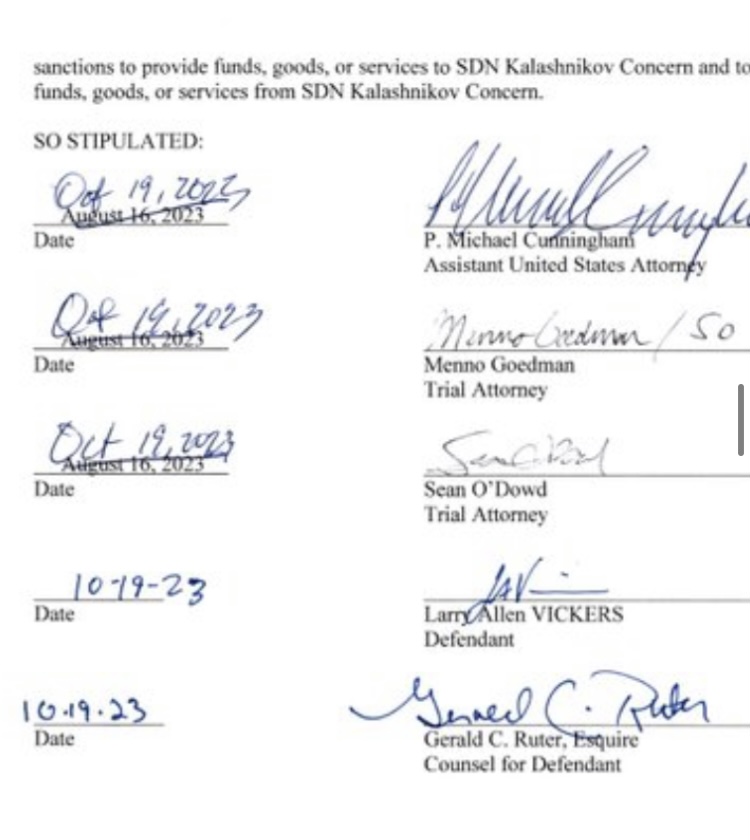 sanctions to provide funds, goods, or services to SDN Kalashnikov Concern and to
funds, goods, or services from SDN Kalashnikov Concern.
SO STIPULATED:
Oct 19, 2023
August 16, 2023
Date
P. Michael Cunningham
Assistant United States Attorney
Oct 19, 2023
August 16, 2023
Date
Menno Goedman / SO
Menno Goedman
Trial Attorney
Oct 19, 2023
August 16, 2023
Date
Sean O'Dowd
Trial Attorney
10-19-23
Date
LAV
Larry Allen VICKERS
Defendant
10.19.23
Date
Gerald C. Ruter
Gerald C. Ruter, Esquire
Counsel for Defendant